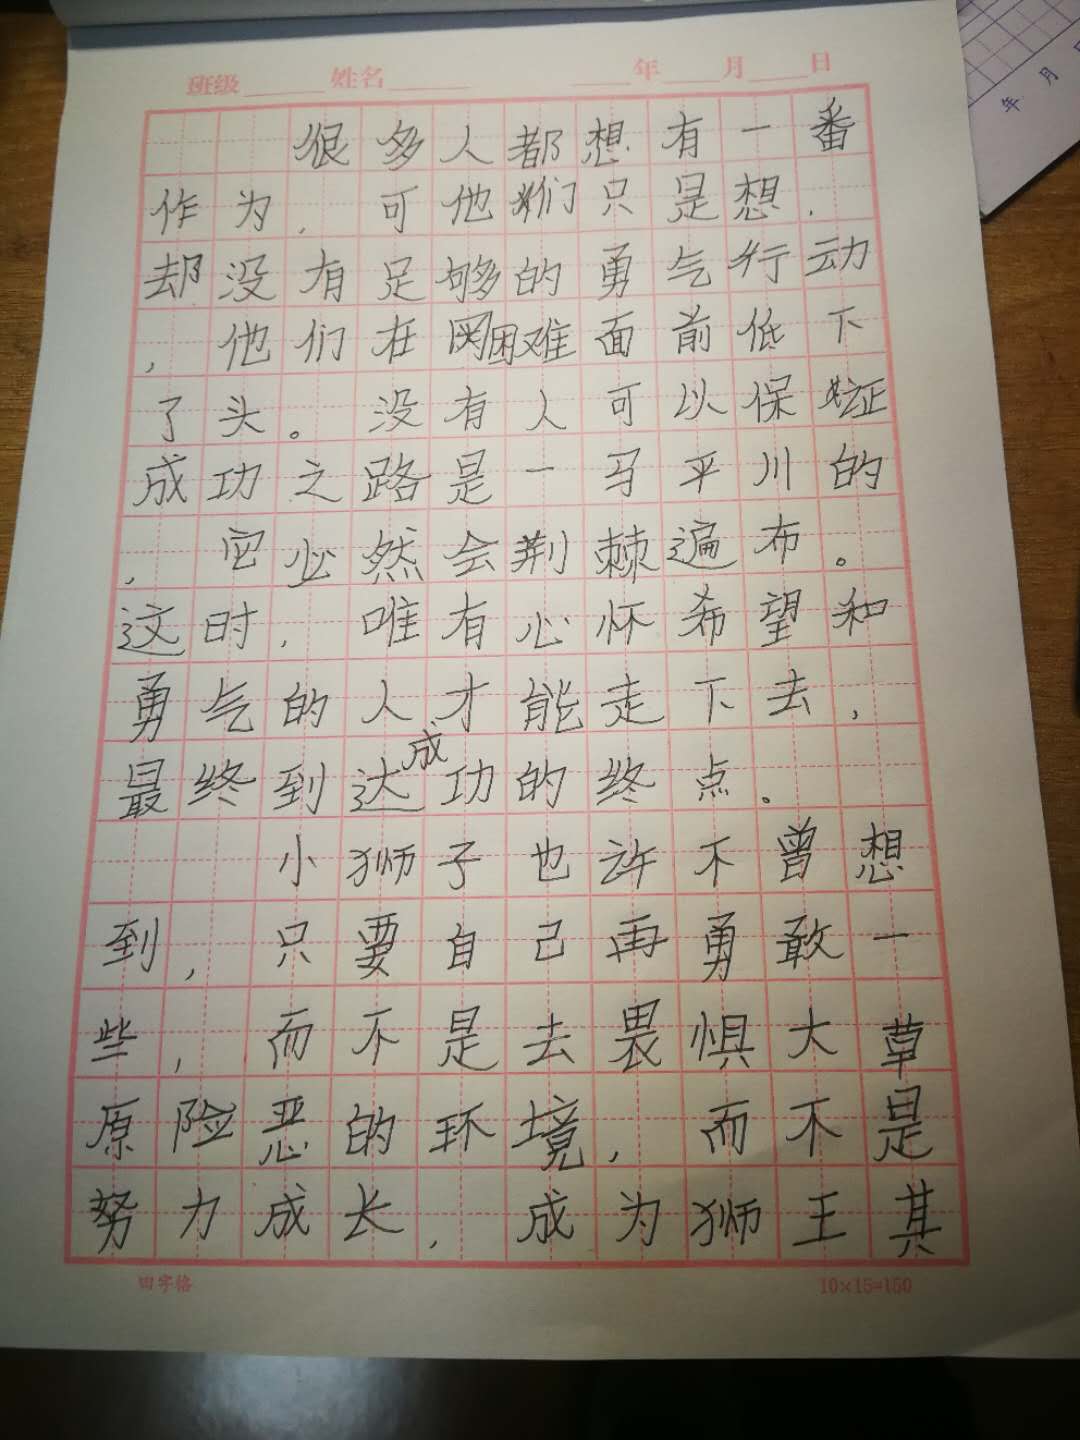 班级 姓名 年 月 日
年 月
很多人都想有一番
作为，可他们只是想，
却没有足够的勇气行动
，他们在困难面前低下
了头。没有人可以保证
成功之路是一马平川的
，它必然会荆棘遍布。
这时，唯有心怀希望和
勇气的人才能走下去，
最终到达成功的终点。
小狮子也许不曾想
到，只要自己再勇敢一
些，而不是去畏惧大草
原险恶的环境，而不是
努力成长，成为狮王其
田字格 10×15=150